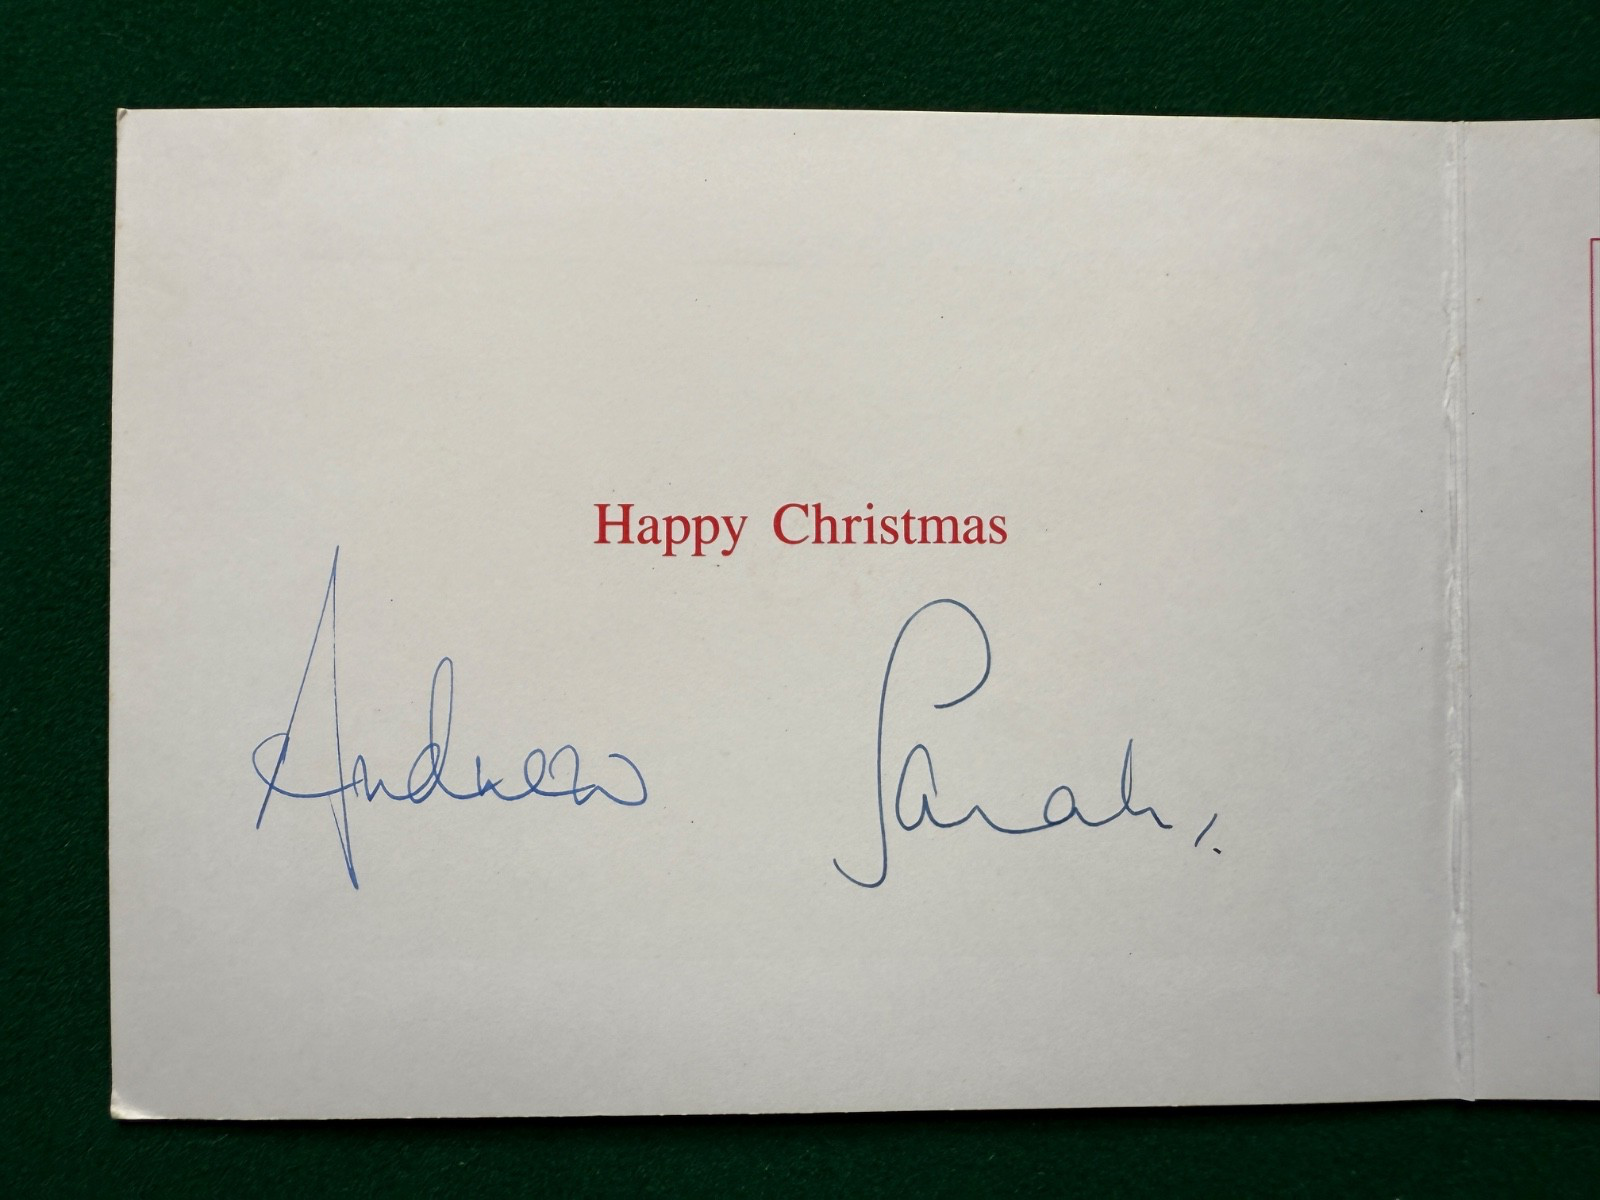 Happy Christmas
Andrew Sarah,